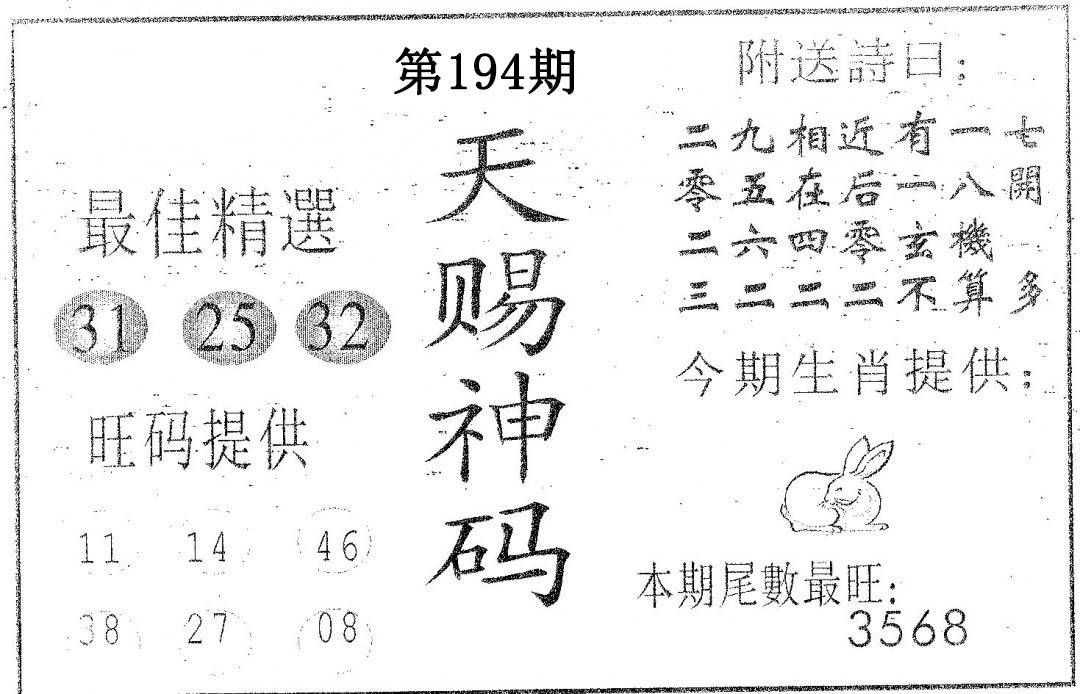 第194期
天赐神码
最佳精選
31 25 32
旺码提供
11 14 46
38 27 08
附送詩曰：
二九相近有一七
零五在后一八開
二六四零玄機
三二二二不算多
今期生肖提供：
本期尾數最旺：
3568